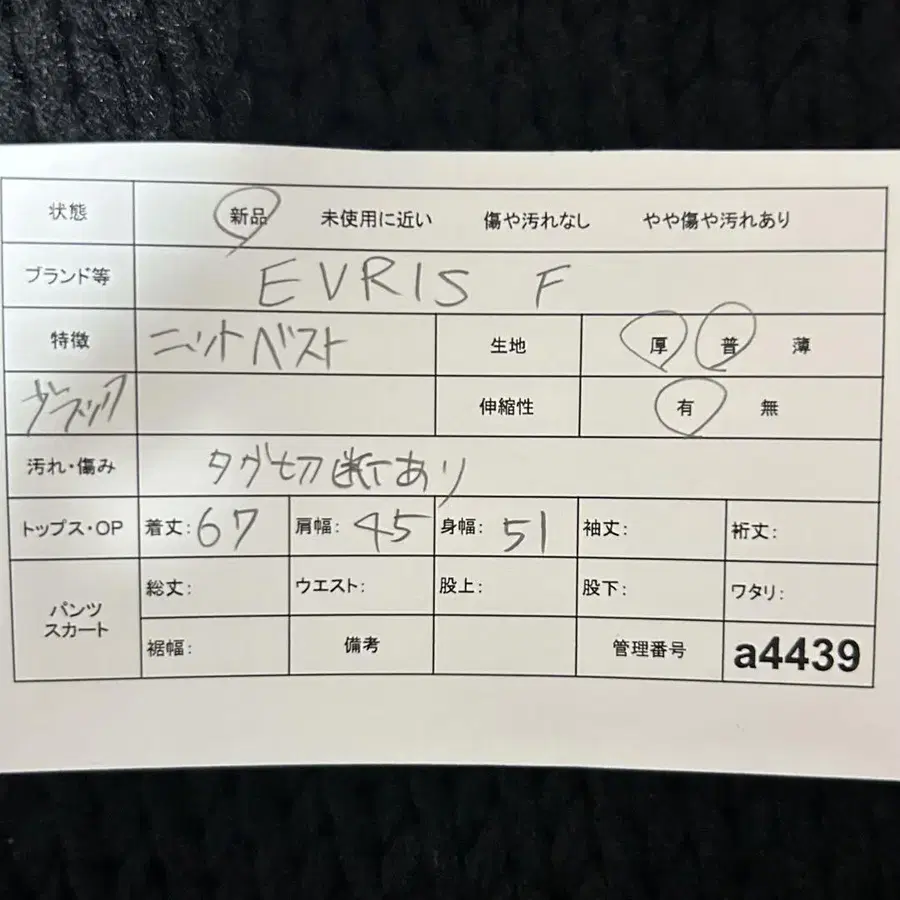 状態 新品 未使用に近い 傷や汚れなし やや傷や汚れあり
ブランド等 EVRIS F
特徴 ニットベスト 生地 厚 普 薄
ブラック 伸縮性 有 無
汚れ・傷み タグ切断あり
トップス・OP 着丈:67 肩幅:45 身幅:51 袖丈: 裄丈:
パンツ
スカート
総丈: ウエスト: 股上: 股下: ワタリ:
裾幅: 備考 管理番号 a4439